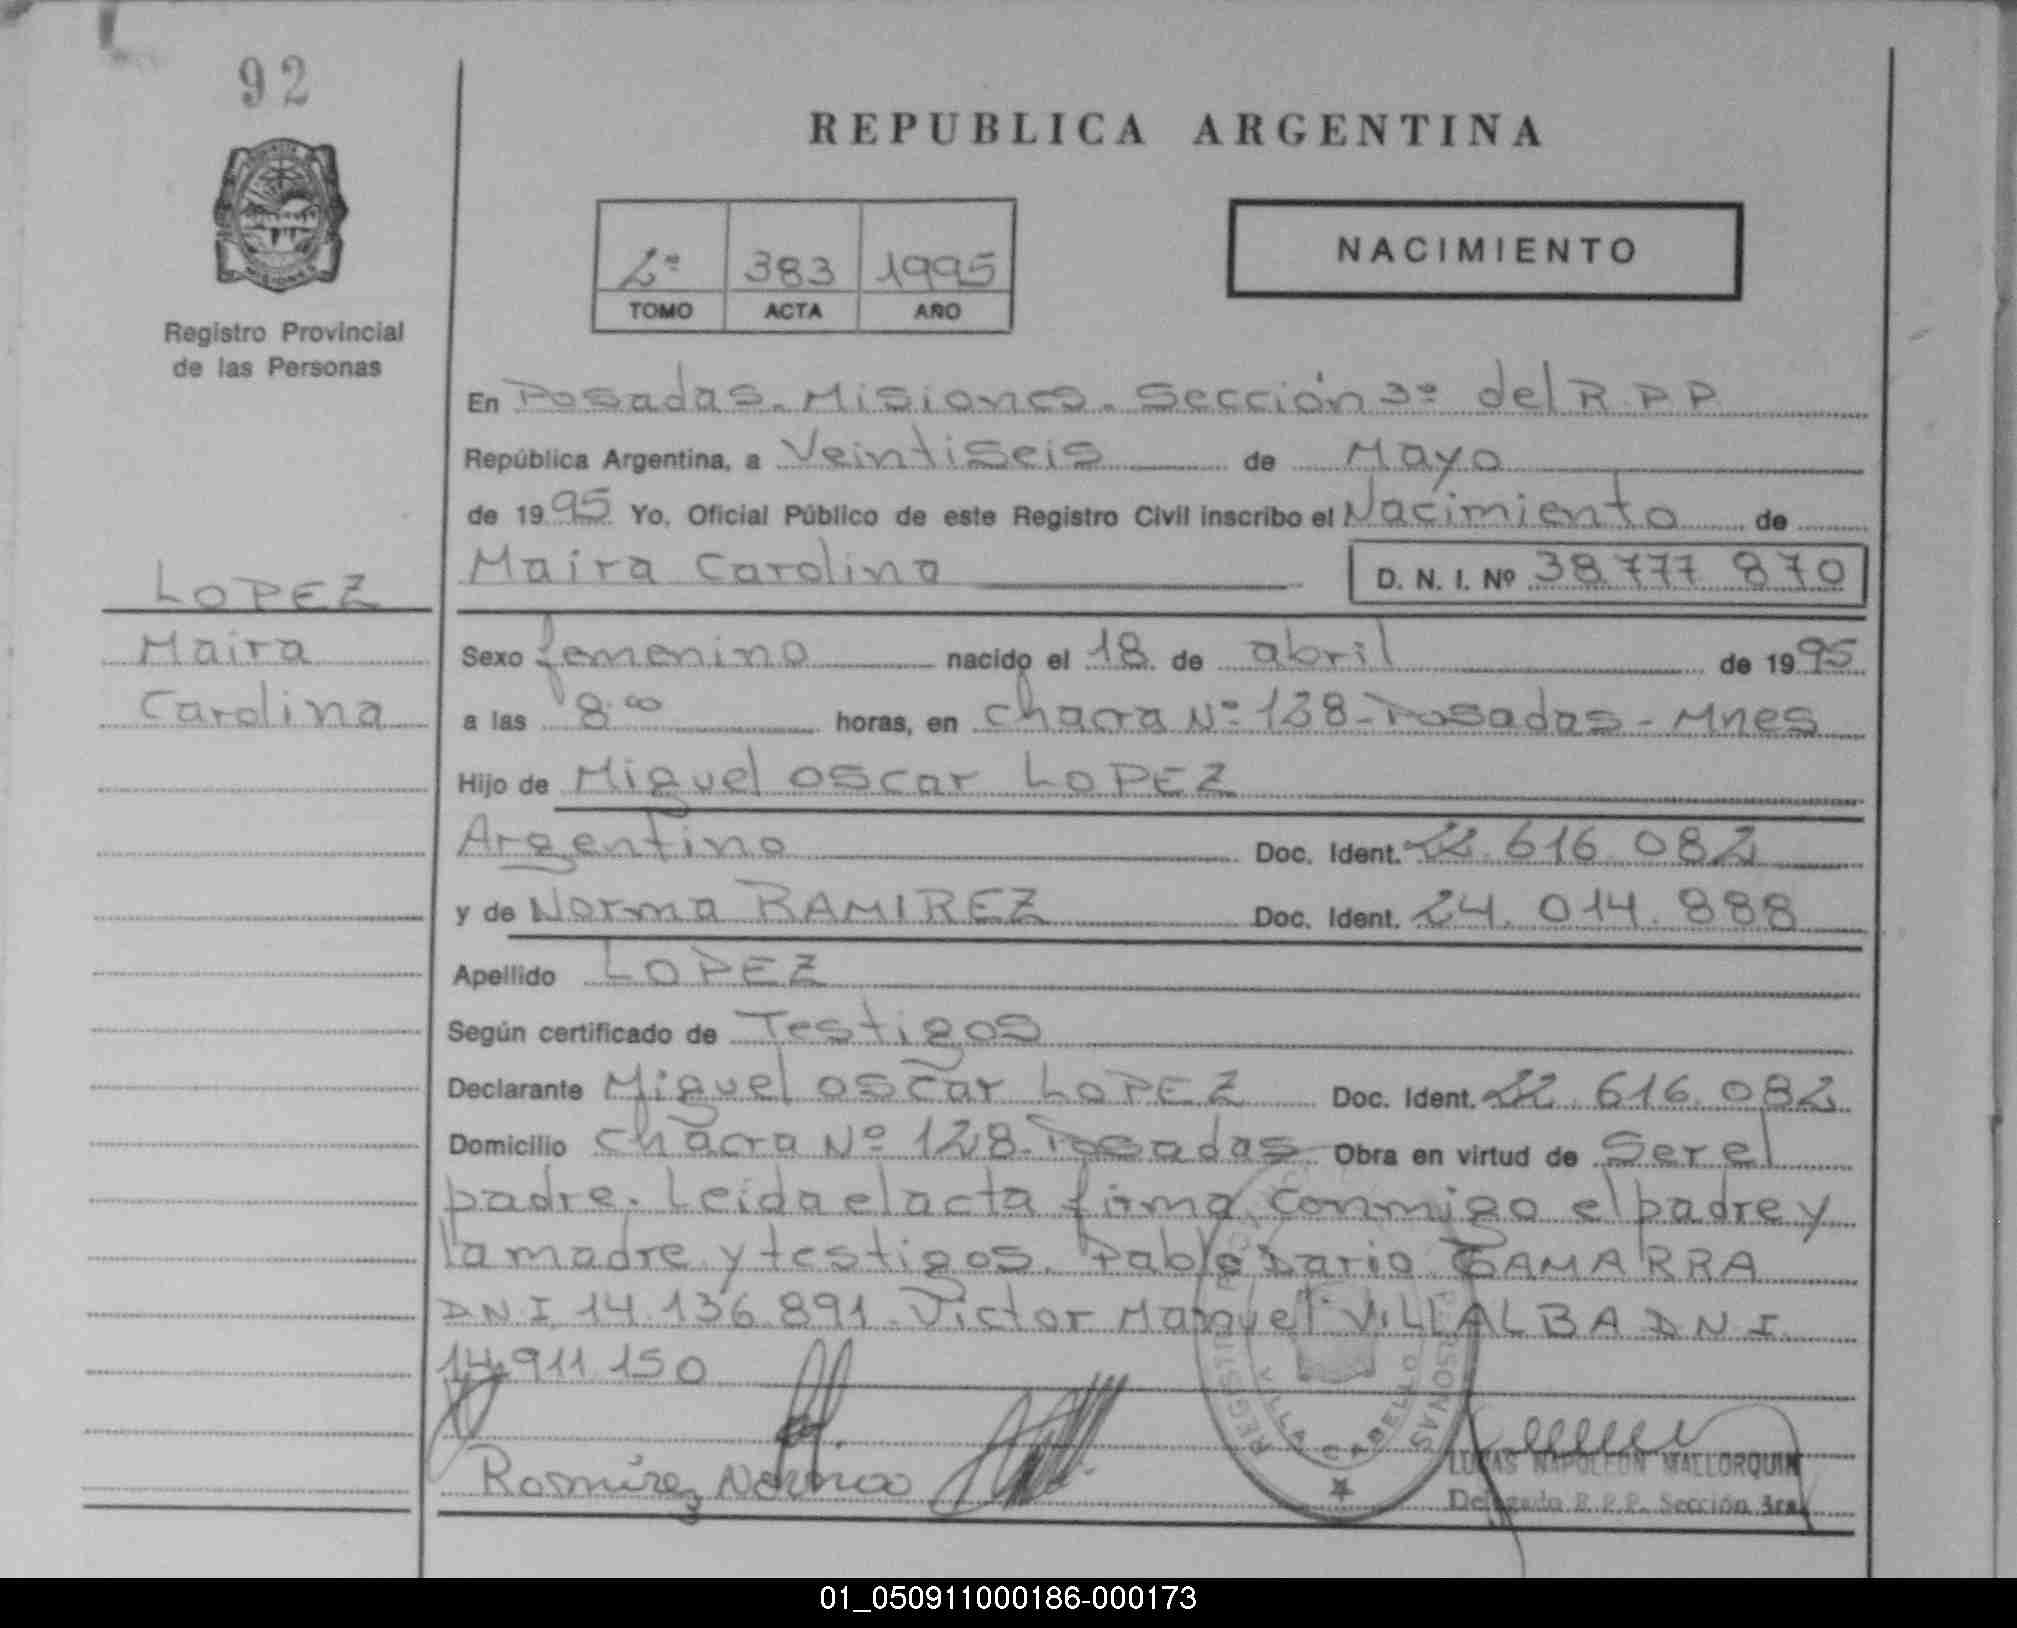 92
REPUBLICA ARGENTINA
2º 383 1995
TOMO ACTA AÑO
NACIMIENTO
Registro Provincial
de las Personas
En Posadas - Misiones - Sección 3º del R.P.P.
República Argentina, a Veintiseis de Mayo
de 1995 Yo, Oficial Público de este Registro Civil inscribo el Nacimiento de
Maira Carolina D. N. I. Nº 38.777 870
LOPEZ
Maira
Carolina
Sexo femenino nacido el 18 de abril de 1995
a las 8.00 horas, en Chacra Nº 128 - Posadas - Mnes
Hijo de Miguel Oscar LOPEZ
Argentino Doc. Ident. 22.616.082
y de Norma RAMIREZ Doc. Ident. 24.014.888
Apellido LOPEZ
Según certificado de Testigos
Declarante Miguel Oscar LOPEZ Doc. Ident. 22.616.082
Domicilio Chacra Nº 128 - Posadas Obra en virtud de Ser el
padre. Leida el acta firma conmigo el padre y
la madre y testigos. Pablo Dario GAMARRA
DNI 14.136.891 - Victor Manuel VILLALBA DNI
14.911.150
Ramirez Norma
VILLA CABELLO
LUCAS NAPOLEON MALLORQUIN
Delegado R.P.P. Sección 3ra
01_050911000186-000173